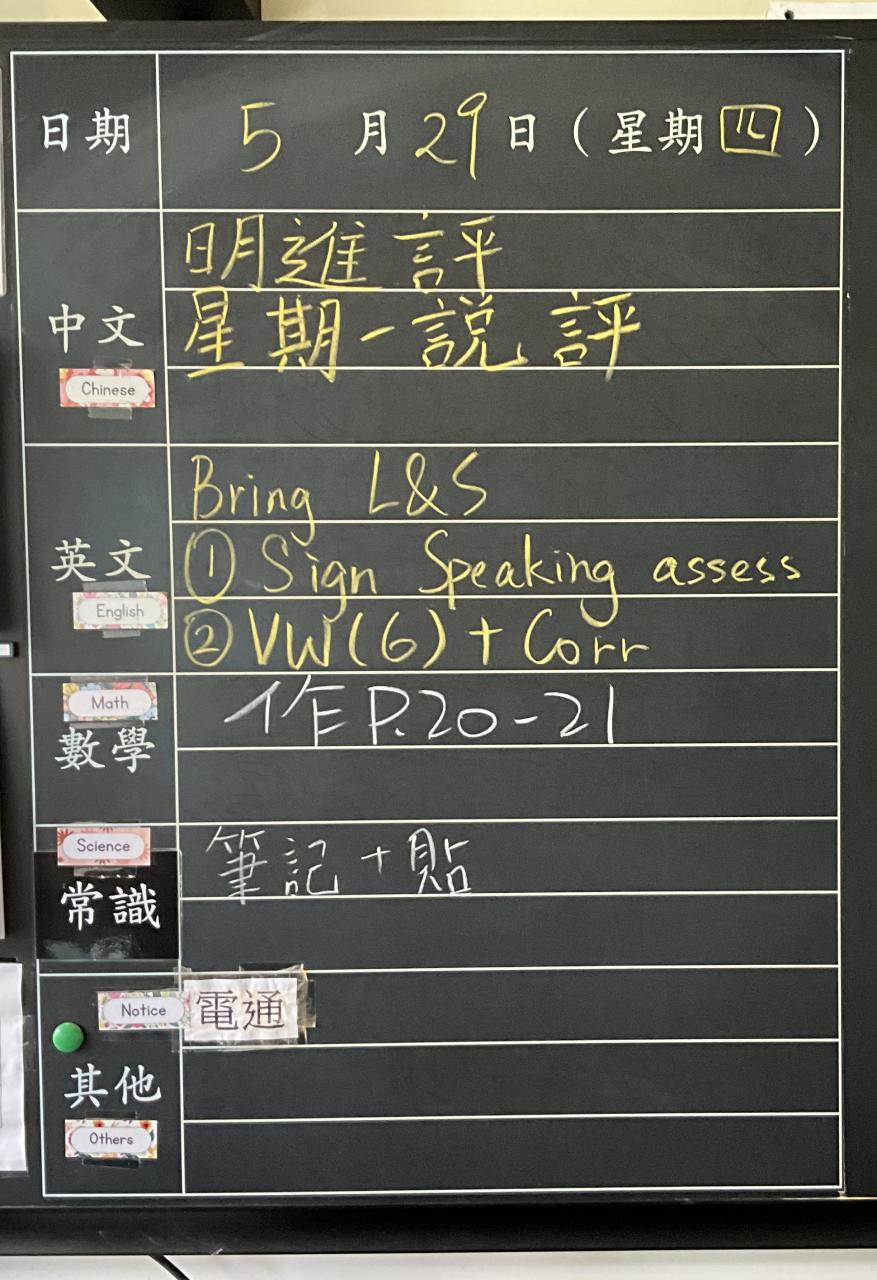 日期 5 月 29 日 ( 星期 四 )
明進評
中文
星期一說評
Chinese
Bring L&S
英文
① Sign Speaking assess
English
② VW(6) + Corr
Math
作 P.20-21
數學
Science
筆記 + 貼
常識
Notice
電通
其他
Others